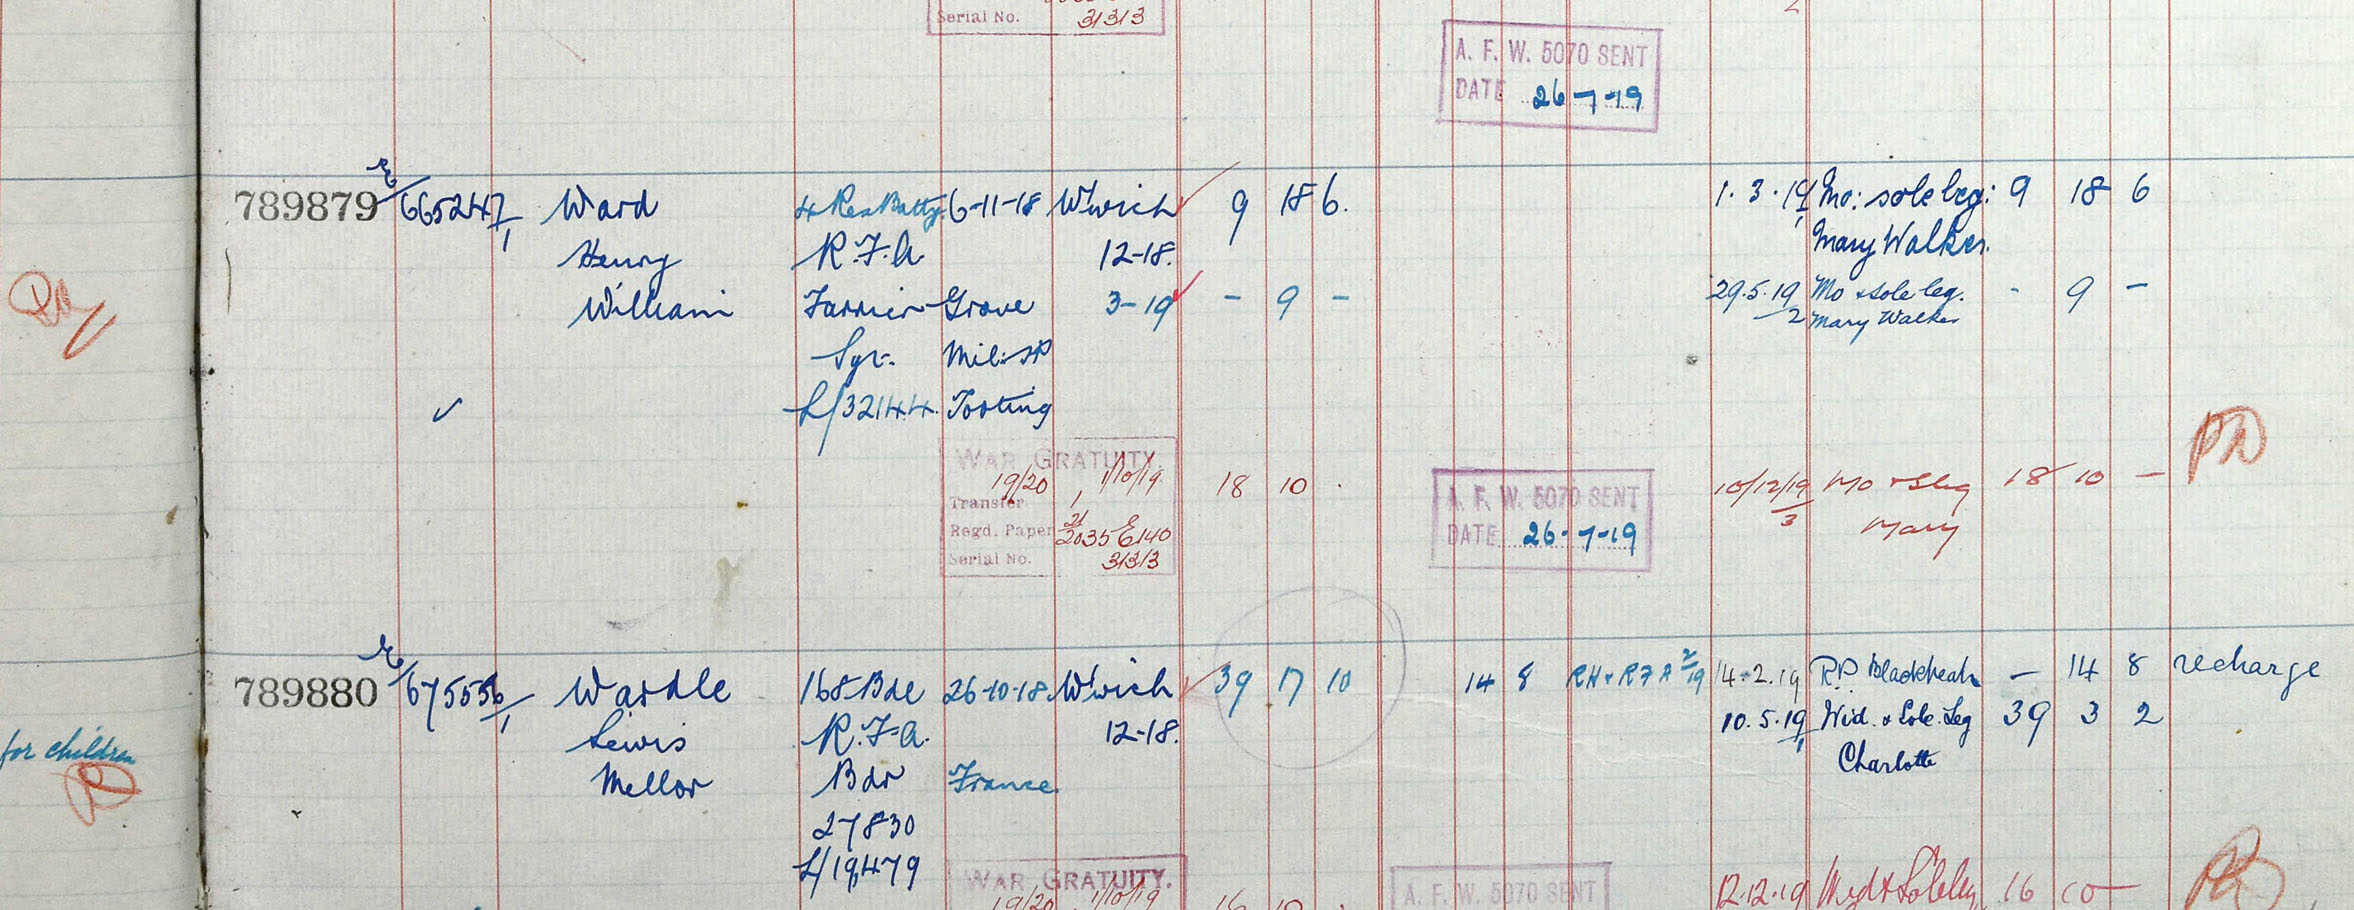 Serial No. 3/3/3
A. F. W. 5070 SENT
DATE 26-7-19
789879 E/ 665247/1 Ward 4 Res Batty 6-11-18 W'wich 9 18 6. 1.3.19/1 Mo: sole leg: 9 18 6
Henry R.F.A. 12-18. Mary Walker.
William Farrier Grove 3-19 - 9 - 29.5.19/2 Mo & sole leg. - 9 -
Mary Walker
Sgt. Mil: Tooting
L/32144.
WAR GRATUITY
19/20 1/10/19 18 10 . 10/12/19/3 Mo & S leg 18 10 -
Transfer Mary
Regd. Paper 21/2035 E 140
Serial No. 3/3/3
A. F. W. 5070 SENT
DATE 26-7-19
789880 E/ 675556/1 Wardle 168 Bde 26-10-18. W'wich 39 17 10 14 8 RH & RFA 2/19 14.2.19 R.P. Blackheath - 14 8 recharge
Lewis R.F.A. 12-18. 10.5.19/1 Wid. & Sole. Leg 39 3 2
Mellor Bdr France. Charlotte
27830
L/19,479
for children
WAR GRATUITY.
19/20 1/10/19 16 10 . 12.12.19 Wid & Sole leg 16 10 -
A. F. W. 5070 SENT